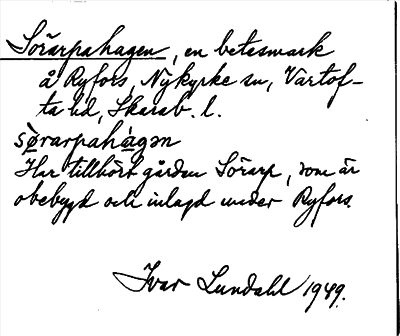 Sörarpahagen, en betesmark
å Ryfors, Nykyrke sn, Vartof-
ta hd, Skarab. l.
sø̀rarpahàgən
Har tillhört gården Sörarp, som är
obebygd och inlagd under Ryfors.
Ivar Lundahl 1949.